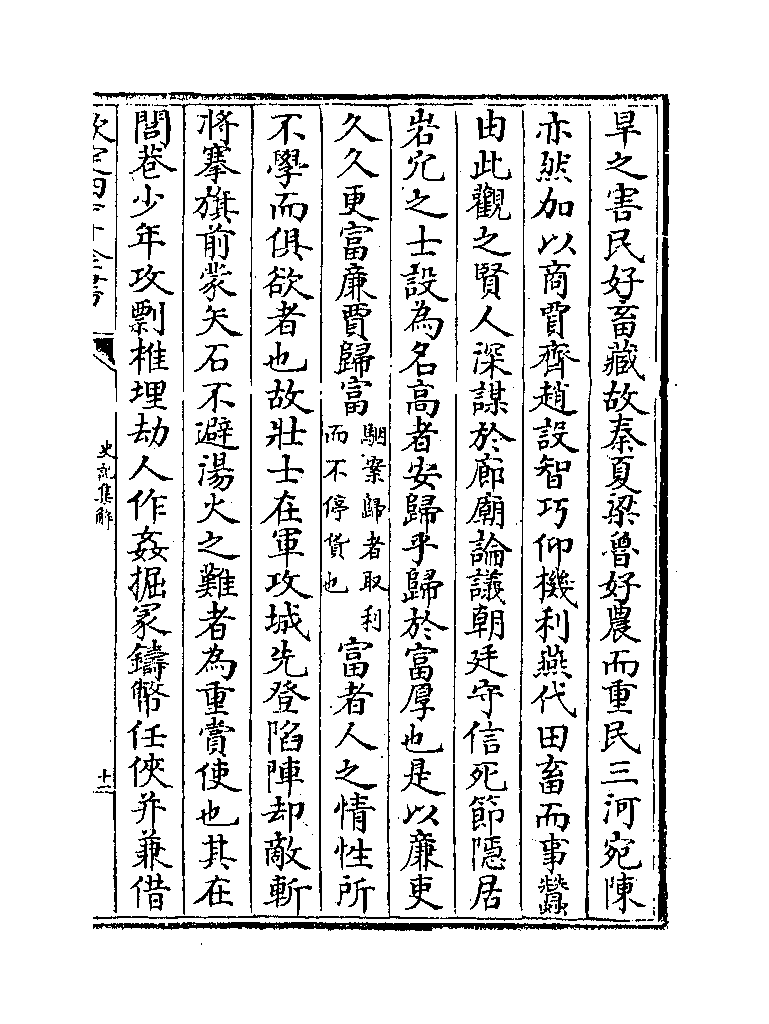 旱之害民好畜藏故秦夏梁魯好農而重民三河宛陳
亦然加以商賈齊趙設智巧仰機利燕代田畜而事蠶
由此觀之賢人深謀於廊廟論議朝廷守信死節隱居
岩穴之士設為名高者安歸乎歸於富厚也是以廉吏
久久更富廉賈歸富駰案歸者取利而不停貨也富者人之情性所
不學而俱欲者也故壯士在軍攻城先登陷陣却敵斬
將搴旗前蒙矢石不避湯火之難者為重賞使也其在
閭巷少年攻剽椎埋劫人作姦掘冢鑄幣任俠并兼借
欽定四庫全書
史記集解
十二